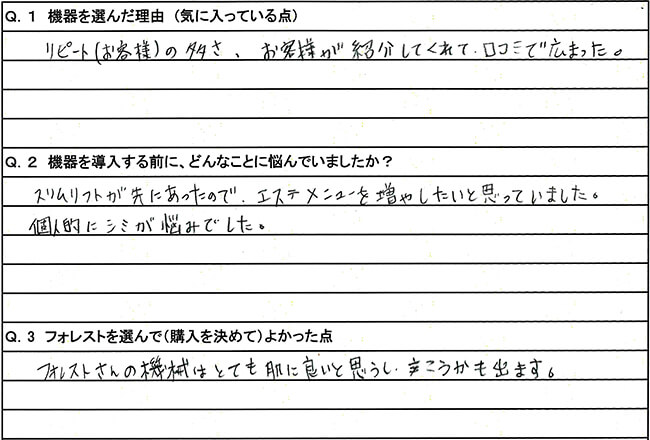 Q. 1 機器を選んだ理由 (気に入っている点)
リピート(お客様)の多さ、お客様が紹介してくれて、口コミで広まった。
Q. 2 機器を導入する前に、どんなことに悩んでいましたか？
スリムリフトが先にあったので、エステメニューを増やしたいと思っていました。
個人的にシミが悩みでした。
Q. 3 フォレストを選んで(購入を決めて)よかった点
フォレストさんの機械はとても肌に良いと思うし、こうかも出ます。